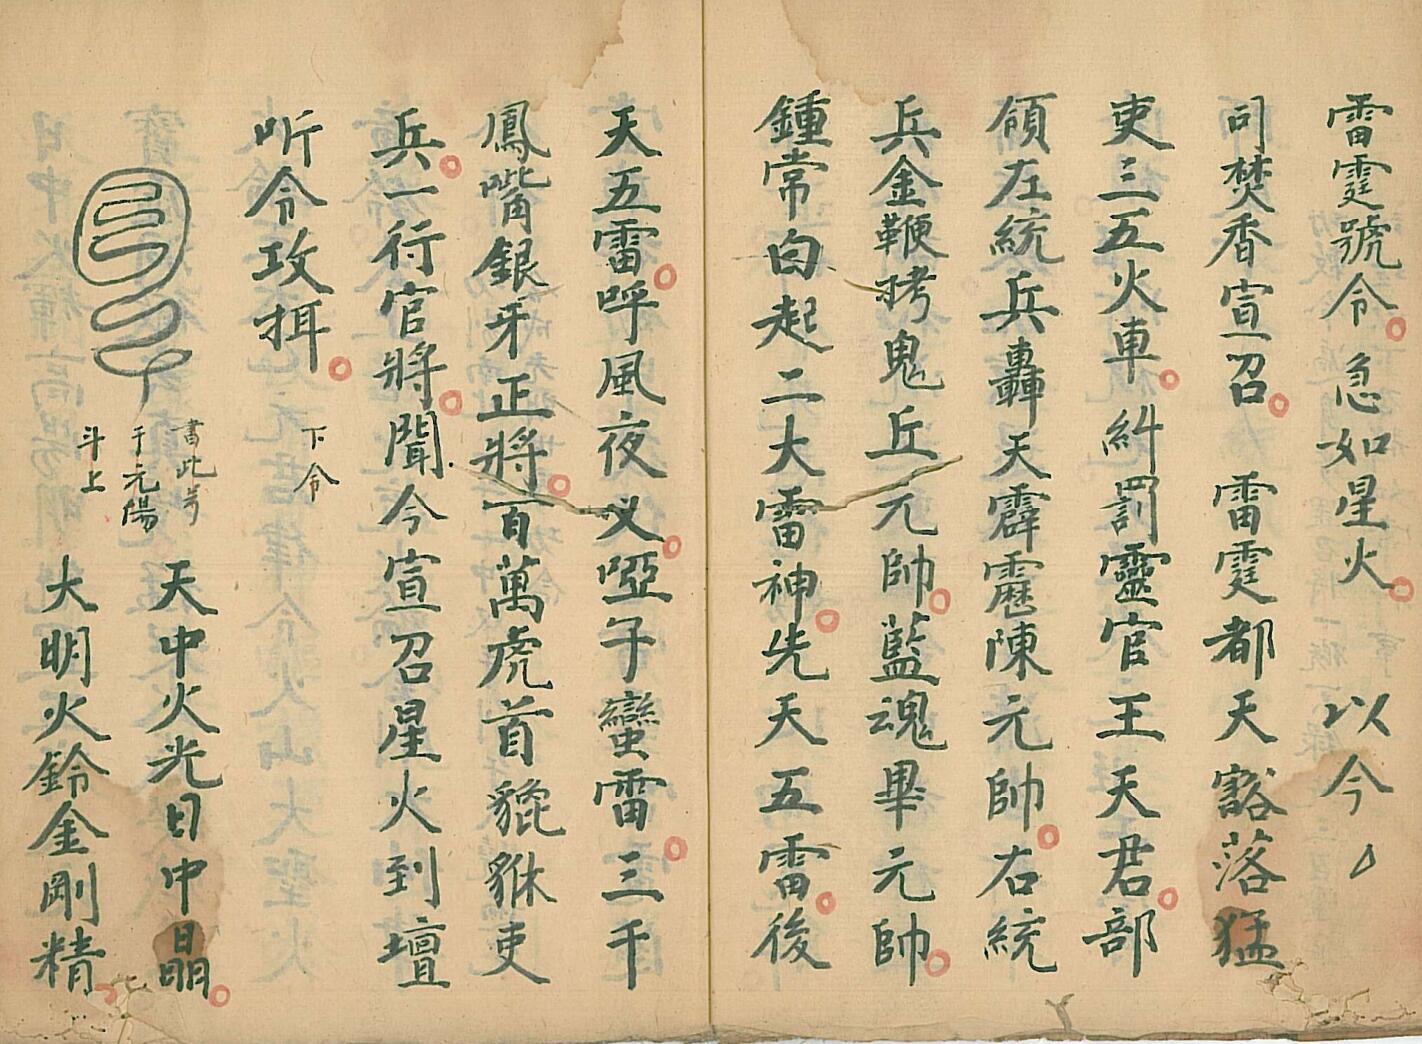 雷霆號令急如星火以今
司焚香宣召雷霆都天豁落猛
吏三五火車糾罰靈官王天君部
領左統兵轟天霹靂陳元帥右統
兵金鞭拷鬼丘元帥藍魂畢元帥
鍾常白起二大雷神先天五雷後
天五雷呼風夜义啞子蠻雷三千
鳳嘴銀牙正將百萬虎首貔貅吏
兵一行官將聞今宣召星火到壇
听令攻揖
下令
書此
于元陽
斗上
天中火光日中晶
大明火鈴金剛精